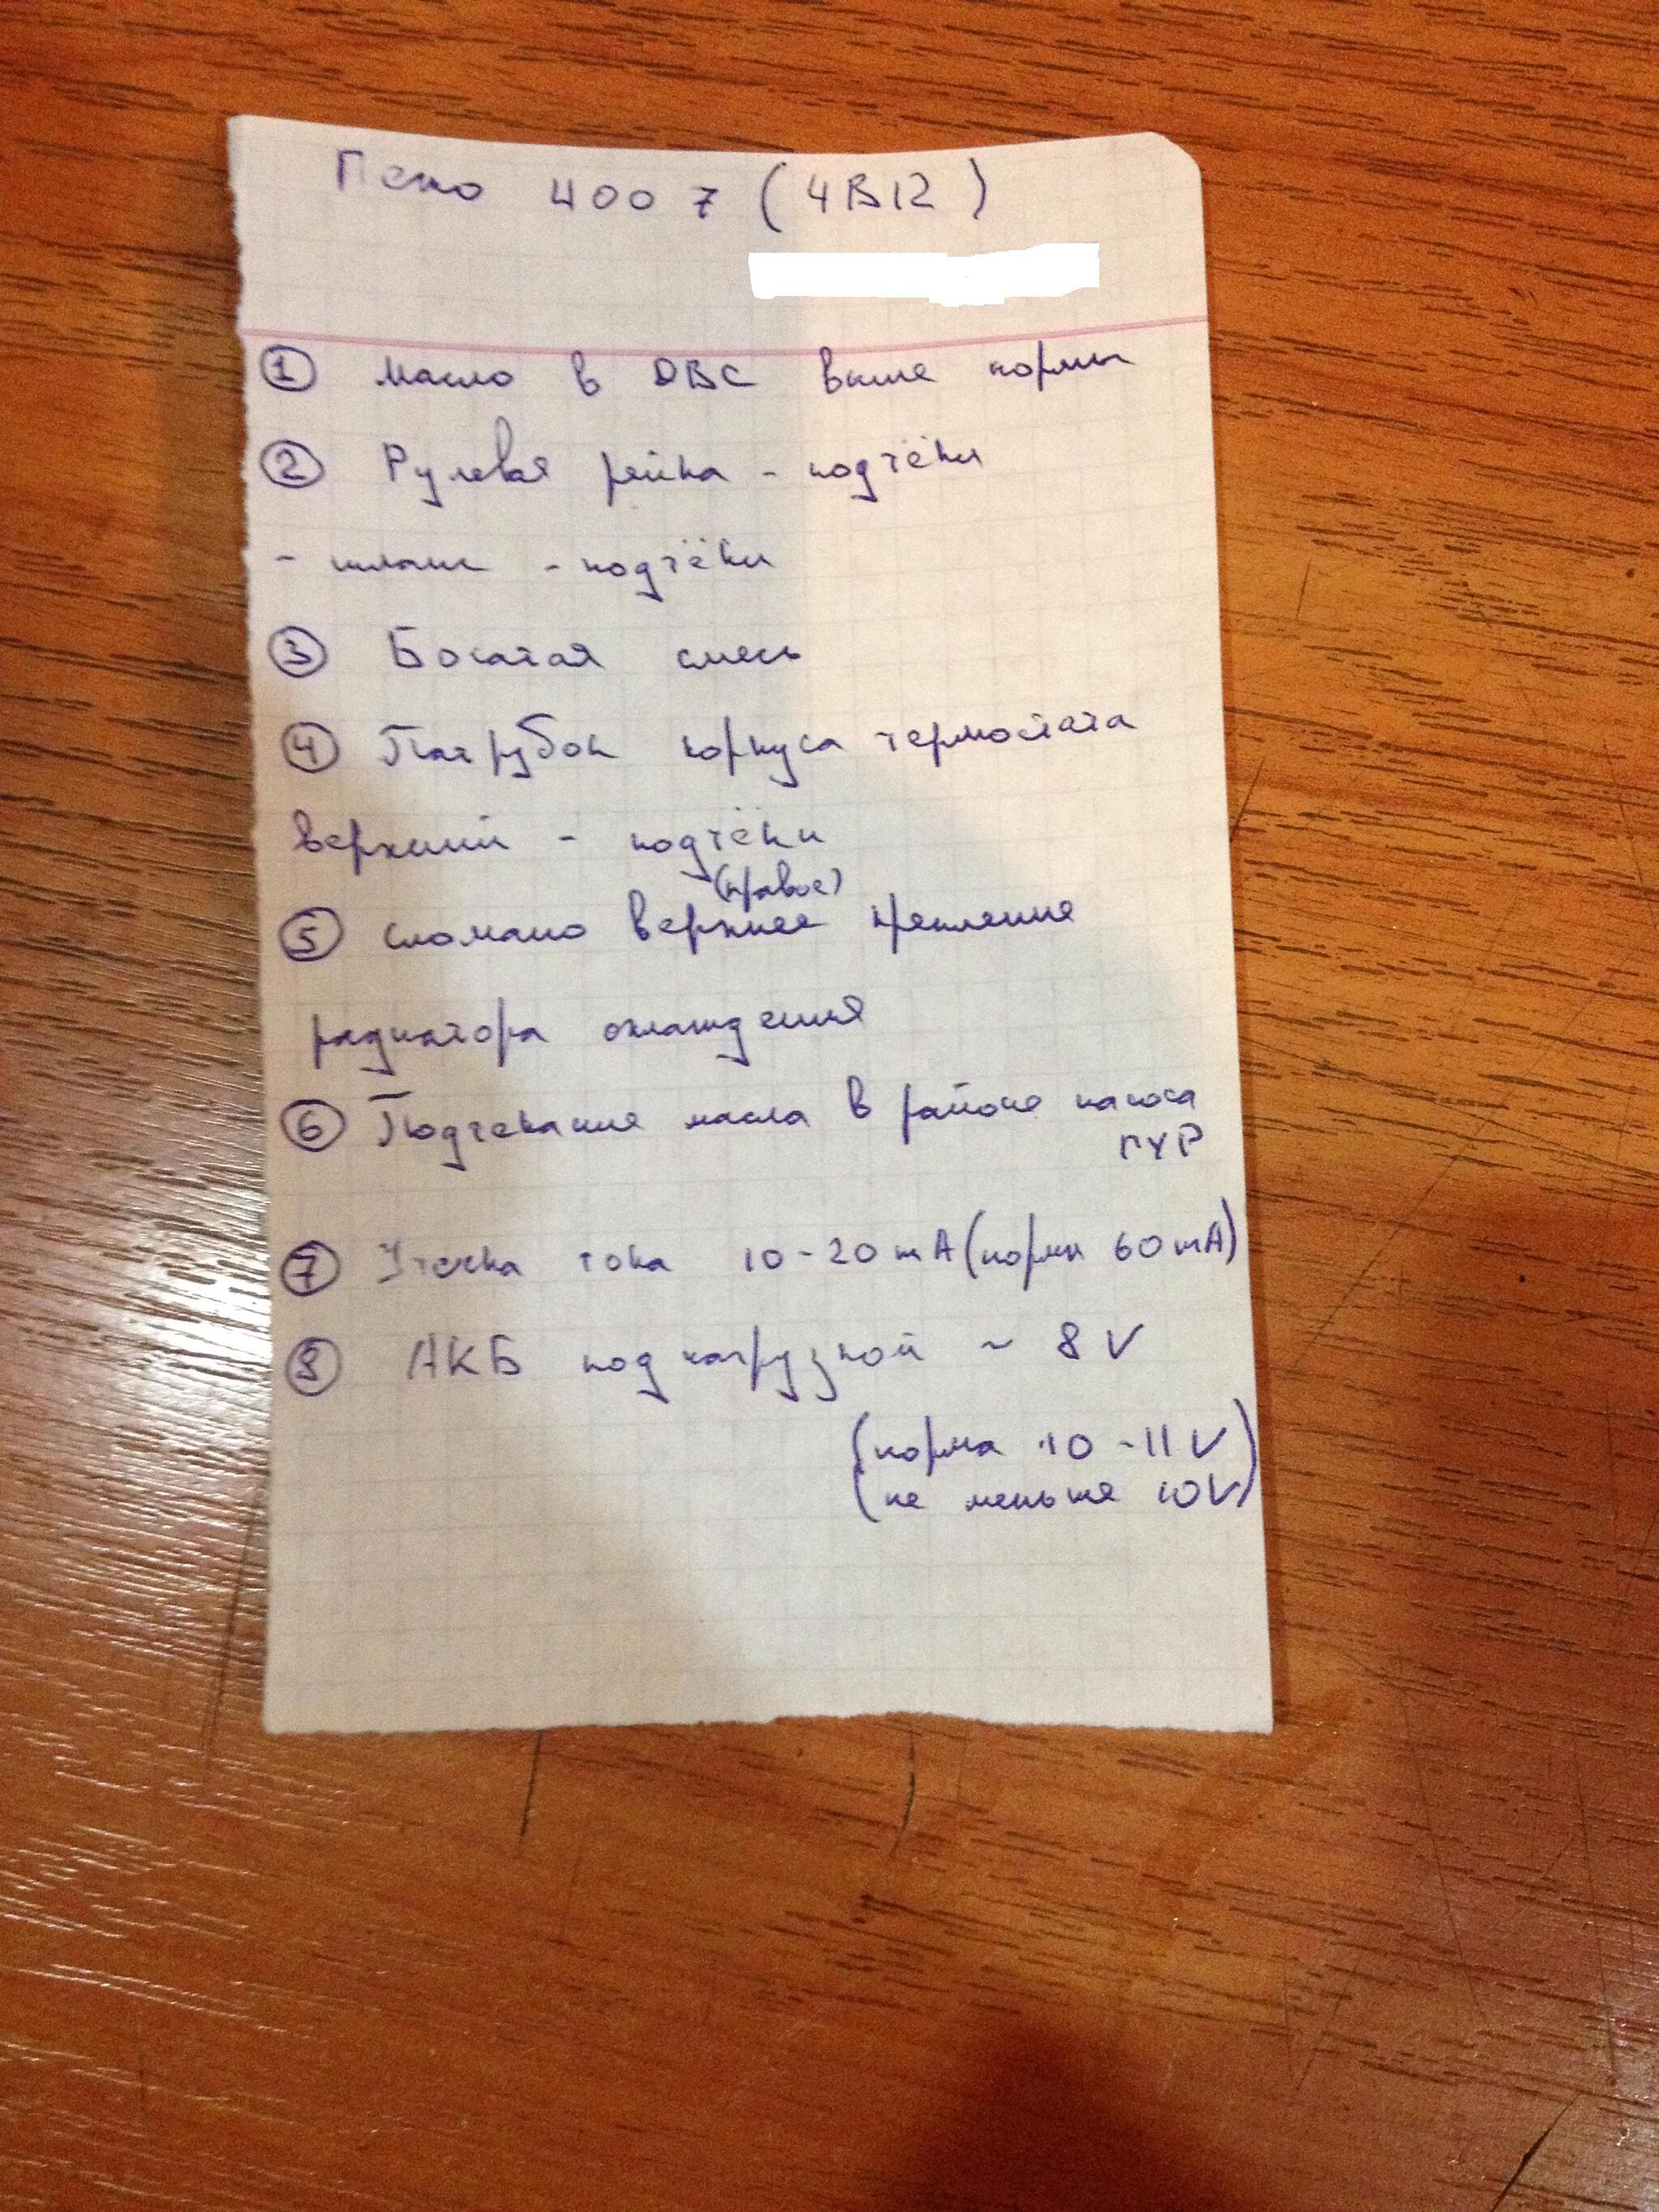 Пежо 4007 (4B12)
① Масло в ДВС выше нормы
② Рулевая рейка - подтёки
- шланг - подтёки
③ Богатая смесь
④ Патрубок корпуса термостата
верхний - подтёки
(правое)
⑤ Сломано верхнее крепление
радиатора охлаждения
⑥ Подтекание масла в районе насоса
ГУР
⑦ Утечка тока 10-20mA (норма 60mA)
⑧ АКБ под нагрузкой ~ 8V
(норма 10-11V
(не меньше 10V)